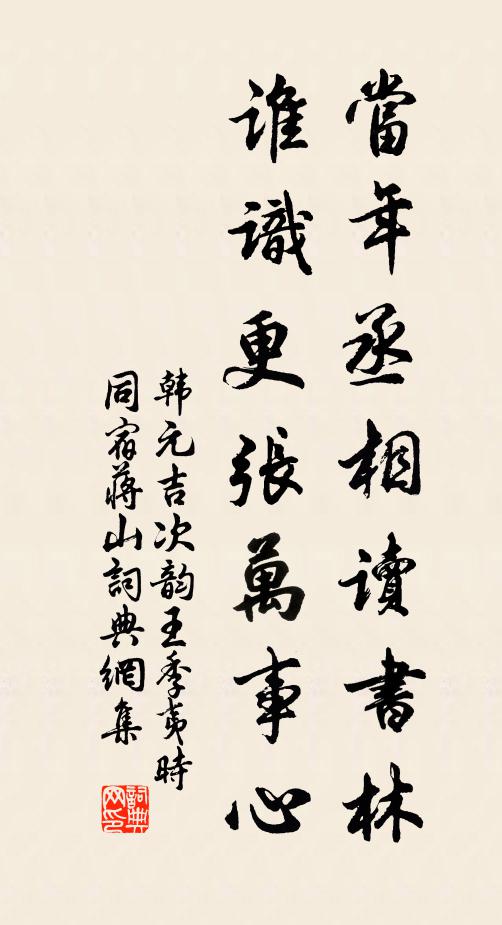 當年丞相讀書林
誰識更張萬事心
韩元吉次韵王季夷時
同宿蔣山詞典網集
詞典网印